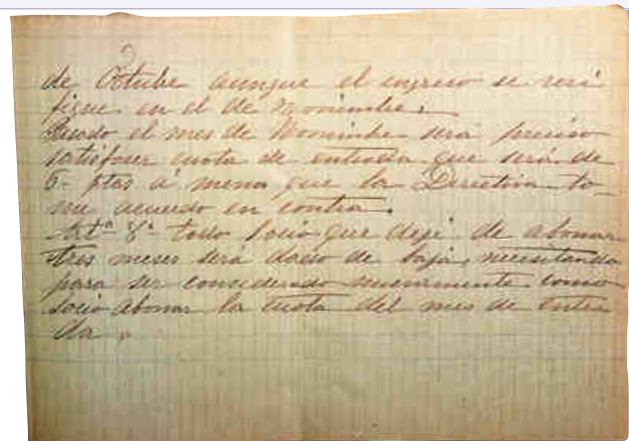 de Octubre aunque el ingreso se veri
fique en el de Noviembre.
Pasado el mes de Noviembre será preciso
satisfacer cuota de entrada que será de
5 ptas á menos que la Directiva to-
me acuerdo en contra.
Artº 8º todo socio que deje de abonar
tres meses sera dado de baja, necesitando
para ser considerado nuevamente como
socio abonar la cuota del mes de entra
da